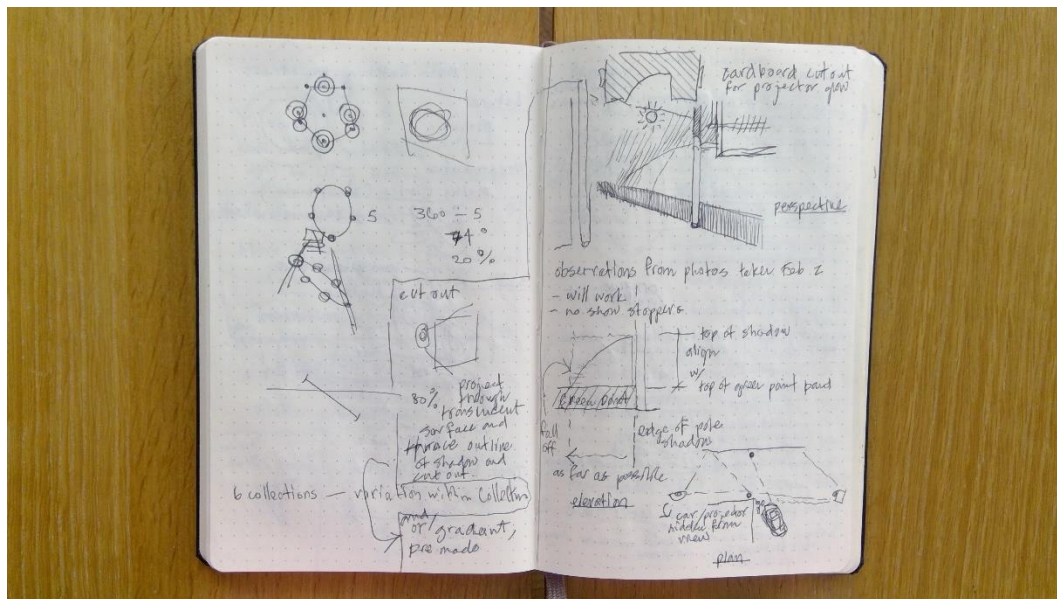 5
360 ÷ 5
74°
20%
cut out
80%
project
through
translucent
surface and
trace outline
of shadow and
cut out.
6 collections — variation within collection
and/
or/gradient,
pre made
cardboard cut out
for projector glow
perspective
observations from photos taken Feb 2
- will work!
- no show stoppers
top of shadow
align
w/
top of green paint band
green paint
fall
off
edge of pole
shadow
as far as possible
elevation
car/projector
hidden from
view
plan